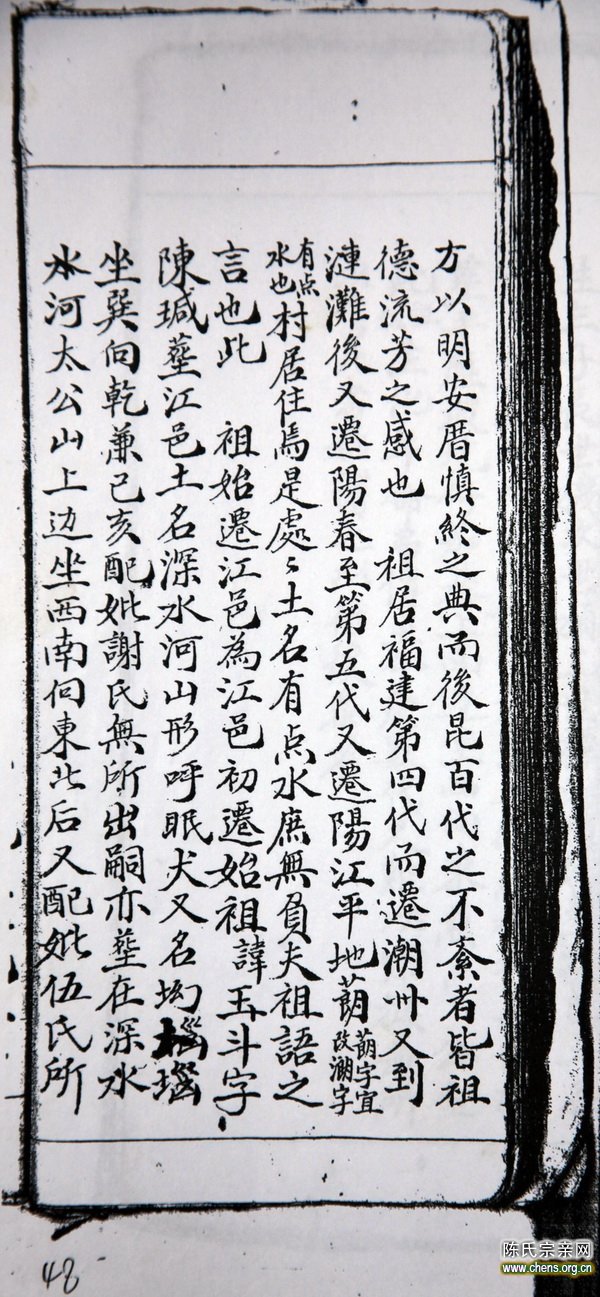 方以明安厝慎終之典而後昆百代之不紊者皆祖
德流芳之感也　祖居福建第四代而遷潮州又到
漣灘後又遷陽春至第五代又遷陽江平地萠萠字宜改湖字
有点水也村居住焉是處〻土名有点水庶無負夫祖語之
言也此　祖始遷江邑為江邑初遷始祖諱玉斗字
陳瑊塟江邑土名深水河山形呼眠犬又名坳瑙
坐巽向乾兼己亥配妣謝氏無所出嗣亦塟在深水
水河太公山上边坐西南向東北后又配妣伍氏所
48
陈氏宗亲网
www.chens.org.cn